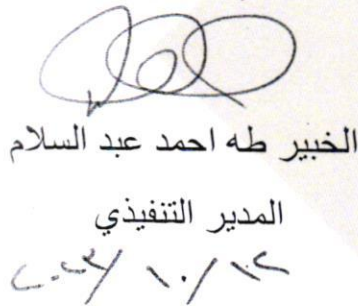 الخبير طه احمد عبد السلام
المدير التنفيذي
٢٠٢٣/١٠/١٢